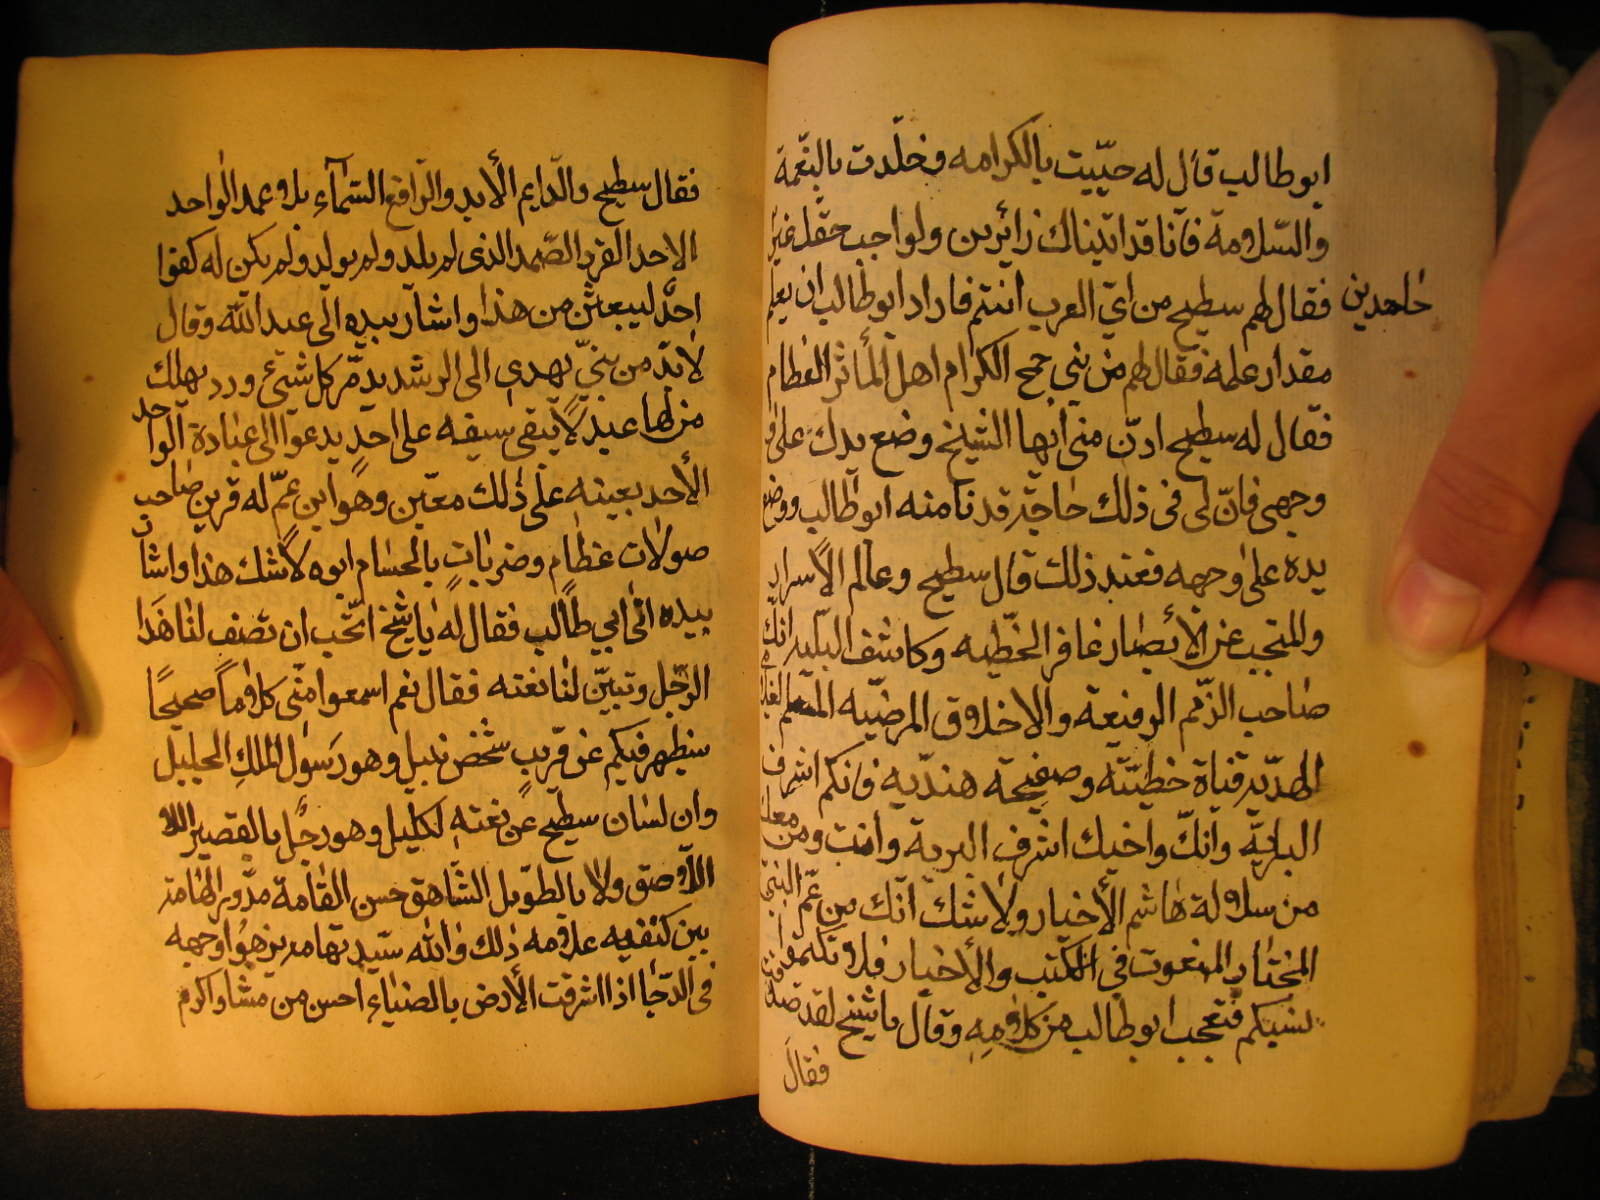 ابوطالب قال له حيّيت بالكرامه وخلّدت بالنعّمة
والسّلامة فانا قد اتيناك زائرين ولواجب حقك غير
جاحدين
فقال لهم سطيح من ايّ العرب انتم فاراد ابوطالب ان يعلم
مقدار علمه فقال لهم من بني جمح الكرام اهل المأثر العظام
فقال له سطيح ادنّ مني ايها الشيخ وضع يدك على
وجهي فانّ لي في ذلك حاجة قدنا منه ابوطالب ووضع
يده على وجهه فعند ذلك قال سطيح وعالم الأسرار
والمحتجب عن الأبصار غافر الخطّيه وكاشف البليّه انّك
صاحب الذّمم الرفيعة والاخلاق المرضيّه المسلم
الهديّه قناة خطيّته وصفيحة هنديّه فانكم اشرف
البريّه وانكّ واخيك اشرف البرية وانت ومن معك
من سلالة هاشم الأخيار ولا شك انّك من عمّ النبي
المختار المنعوت في الكتب والأخبار فلا تكتموا
نسبكم فتعجب ابوطالب من كلامه وقال ياشيخ لقد
فقال
فقال سطيح والدّايم الأبد والرّافع السّمآء بلا عمد الواحد
الاحد الفرد الصّمد الذي لم يلد ولم يولد ولم يكن له كفوا
احدٌ ليبعثن من هذا واشار بيده الى عبد الله وقال
لا بّد من نبيّ يهدي الى الرشد يدمّر كل شيء ورد يهلك
من لها عبد لا يبقى سيفه على احدٍ يدعوا الى عبادة الواحد
الأحد يعينه على ذلك معيّن وهو ابن عمّ له قرين صاحب
صولات عظام وضربات بالحسام ابوه لاشك هذا واشار
بيده الى ابي طالب فقال له يا شيخ اتحّب ان تصف لنا هذا
الرجّل وتبيّن لنا نعته فقال نعم اسمعوا منّي كلاماً صحيحًا
سيظهر فيكم عن قريب شخص نبيل وهو رسول الملك الجليل
وان لسان سطيح عن نعته لكليل وهو رجل لا بالقصير اللا
اللاّصق ولا بالطويل الشاهق حسن القامة مدّور الهامة
بين كتفيه علامه ذلك والله سيّد تهامه يزهوا وجهه
في الدّجا اذا اشرقت الأرض بالضياء احسن من مشا واكرم